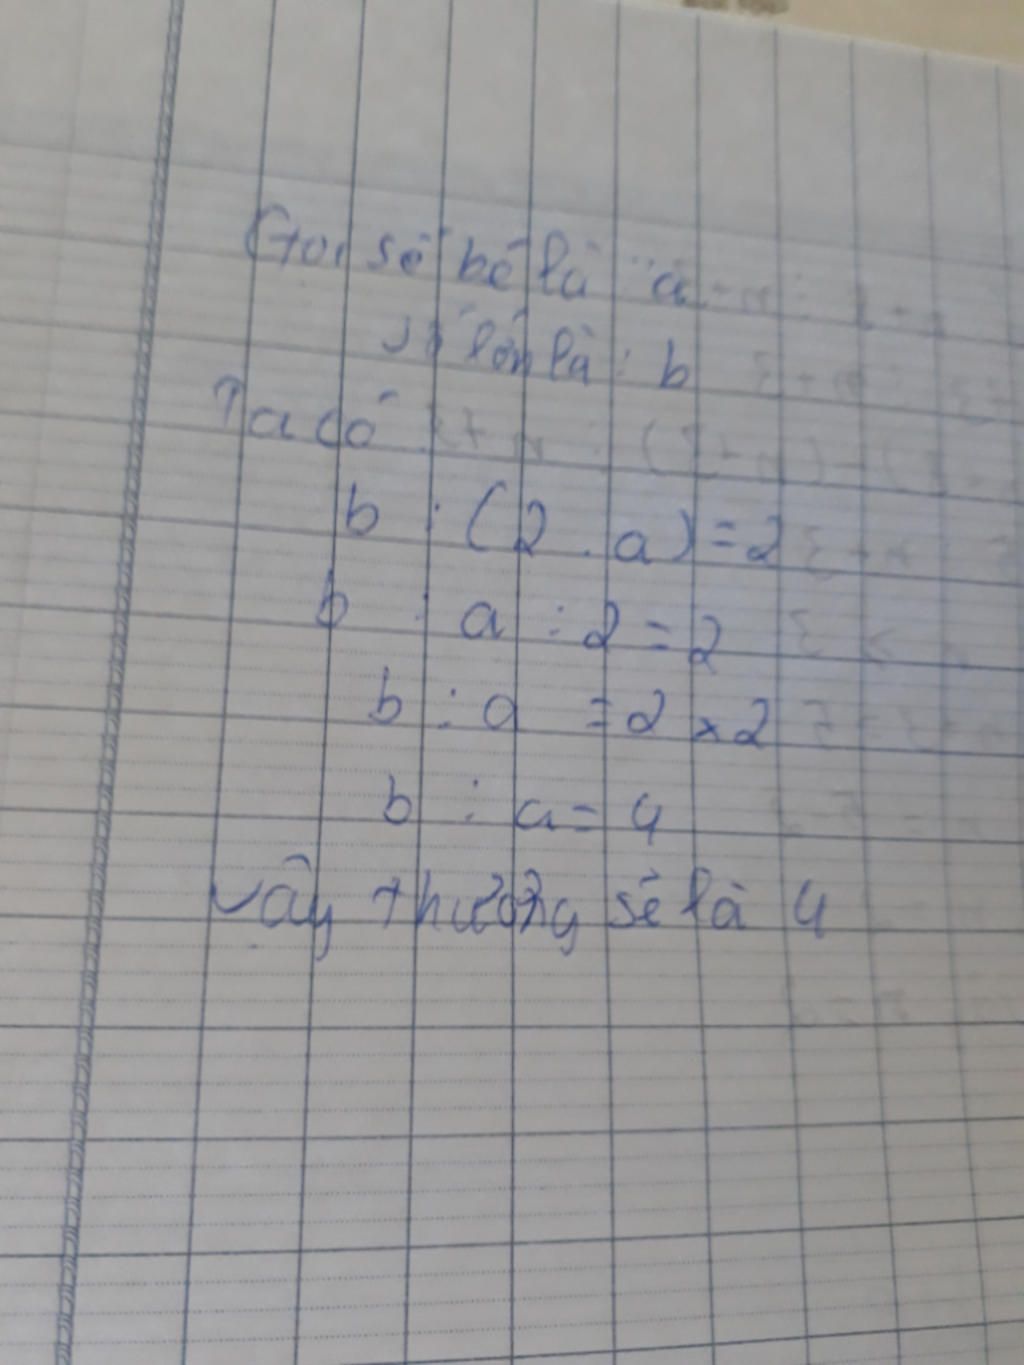 Gọi số bé là "a
số lớn là : b
Ta có
b : (2 . a) = 2
b : a : 2 = 2
b : a = 2 x 2
b : a = 4
Vậy thương sẽ là 4